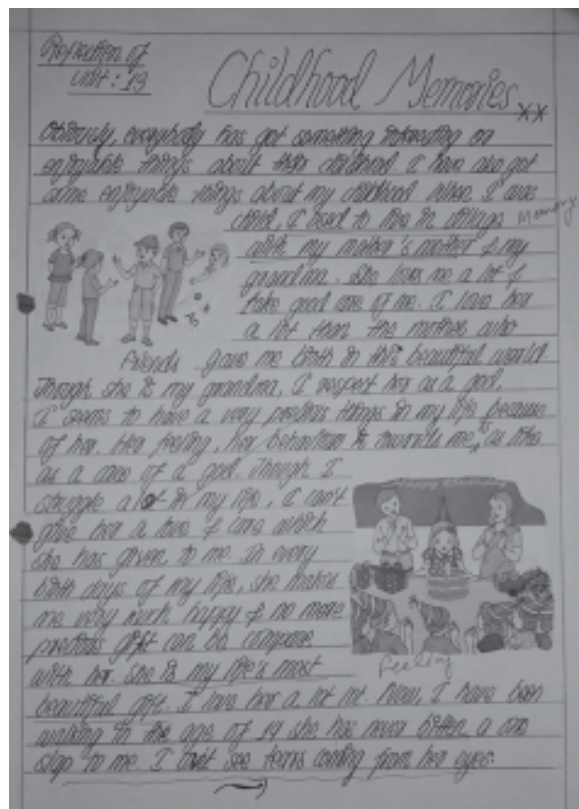 Reflection of
unit : 19
Childhood Memories
xx
Obviously, everybody has got something interesting or
enjoyable things about their childhood. I have also got
some enjoyable things about my childhood. When I was
child, I used to live in village
Memory
with my mother's mother & my
grandma. She loves me a lot &
take good care of me. I love her
a lot than the mother who
Friends gave me birth in this beautiful world.
Though she is my grandma, I respect her as a god.
I seems to have a very precious things in my life because
of her. Her feeling, her behaviour is towards me is as like
as a care of a god. Though I
struggle a lot in my life, I can't
give her a love & care which
she has given to me. In every
birth days of my life, she makes
me very much happy & no more
precious gift can be compare
with her. She is my life's most
Happy Birthday
Feeling
beautiful gift. I love her a lot. Now, I have been
walking in the age of 19 she has never a one
slap to me. I see tears coming from her eyes.